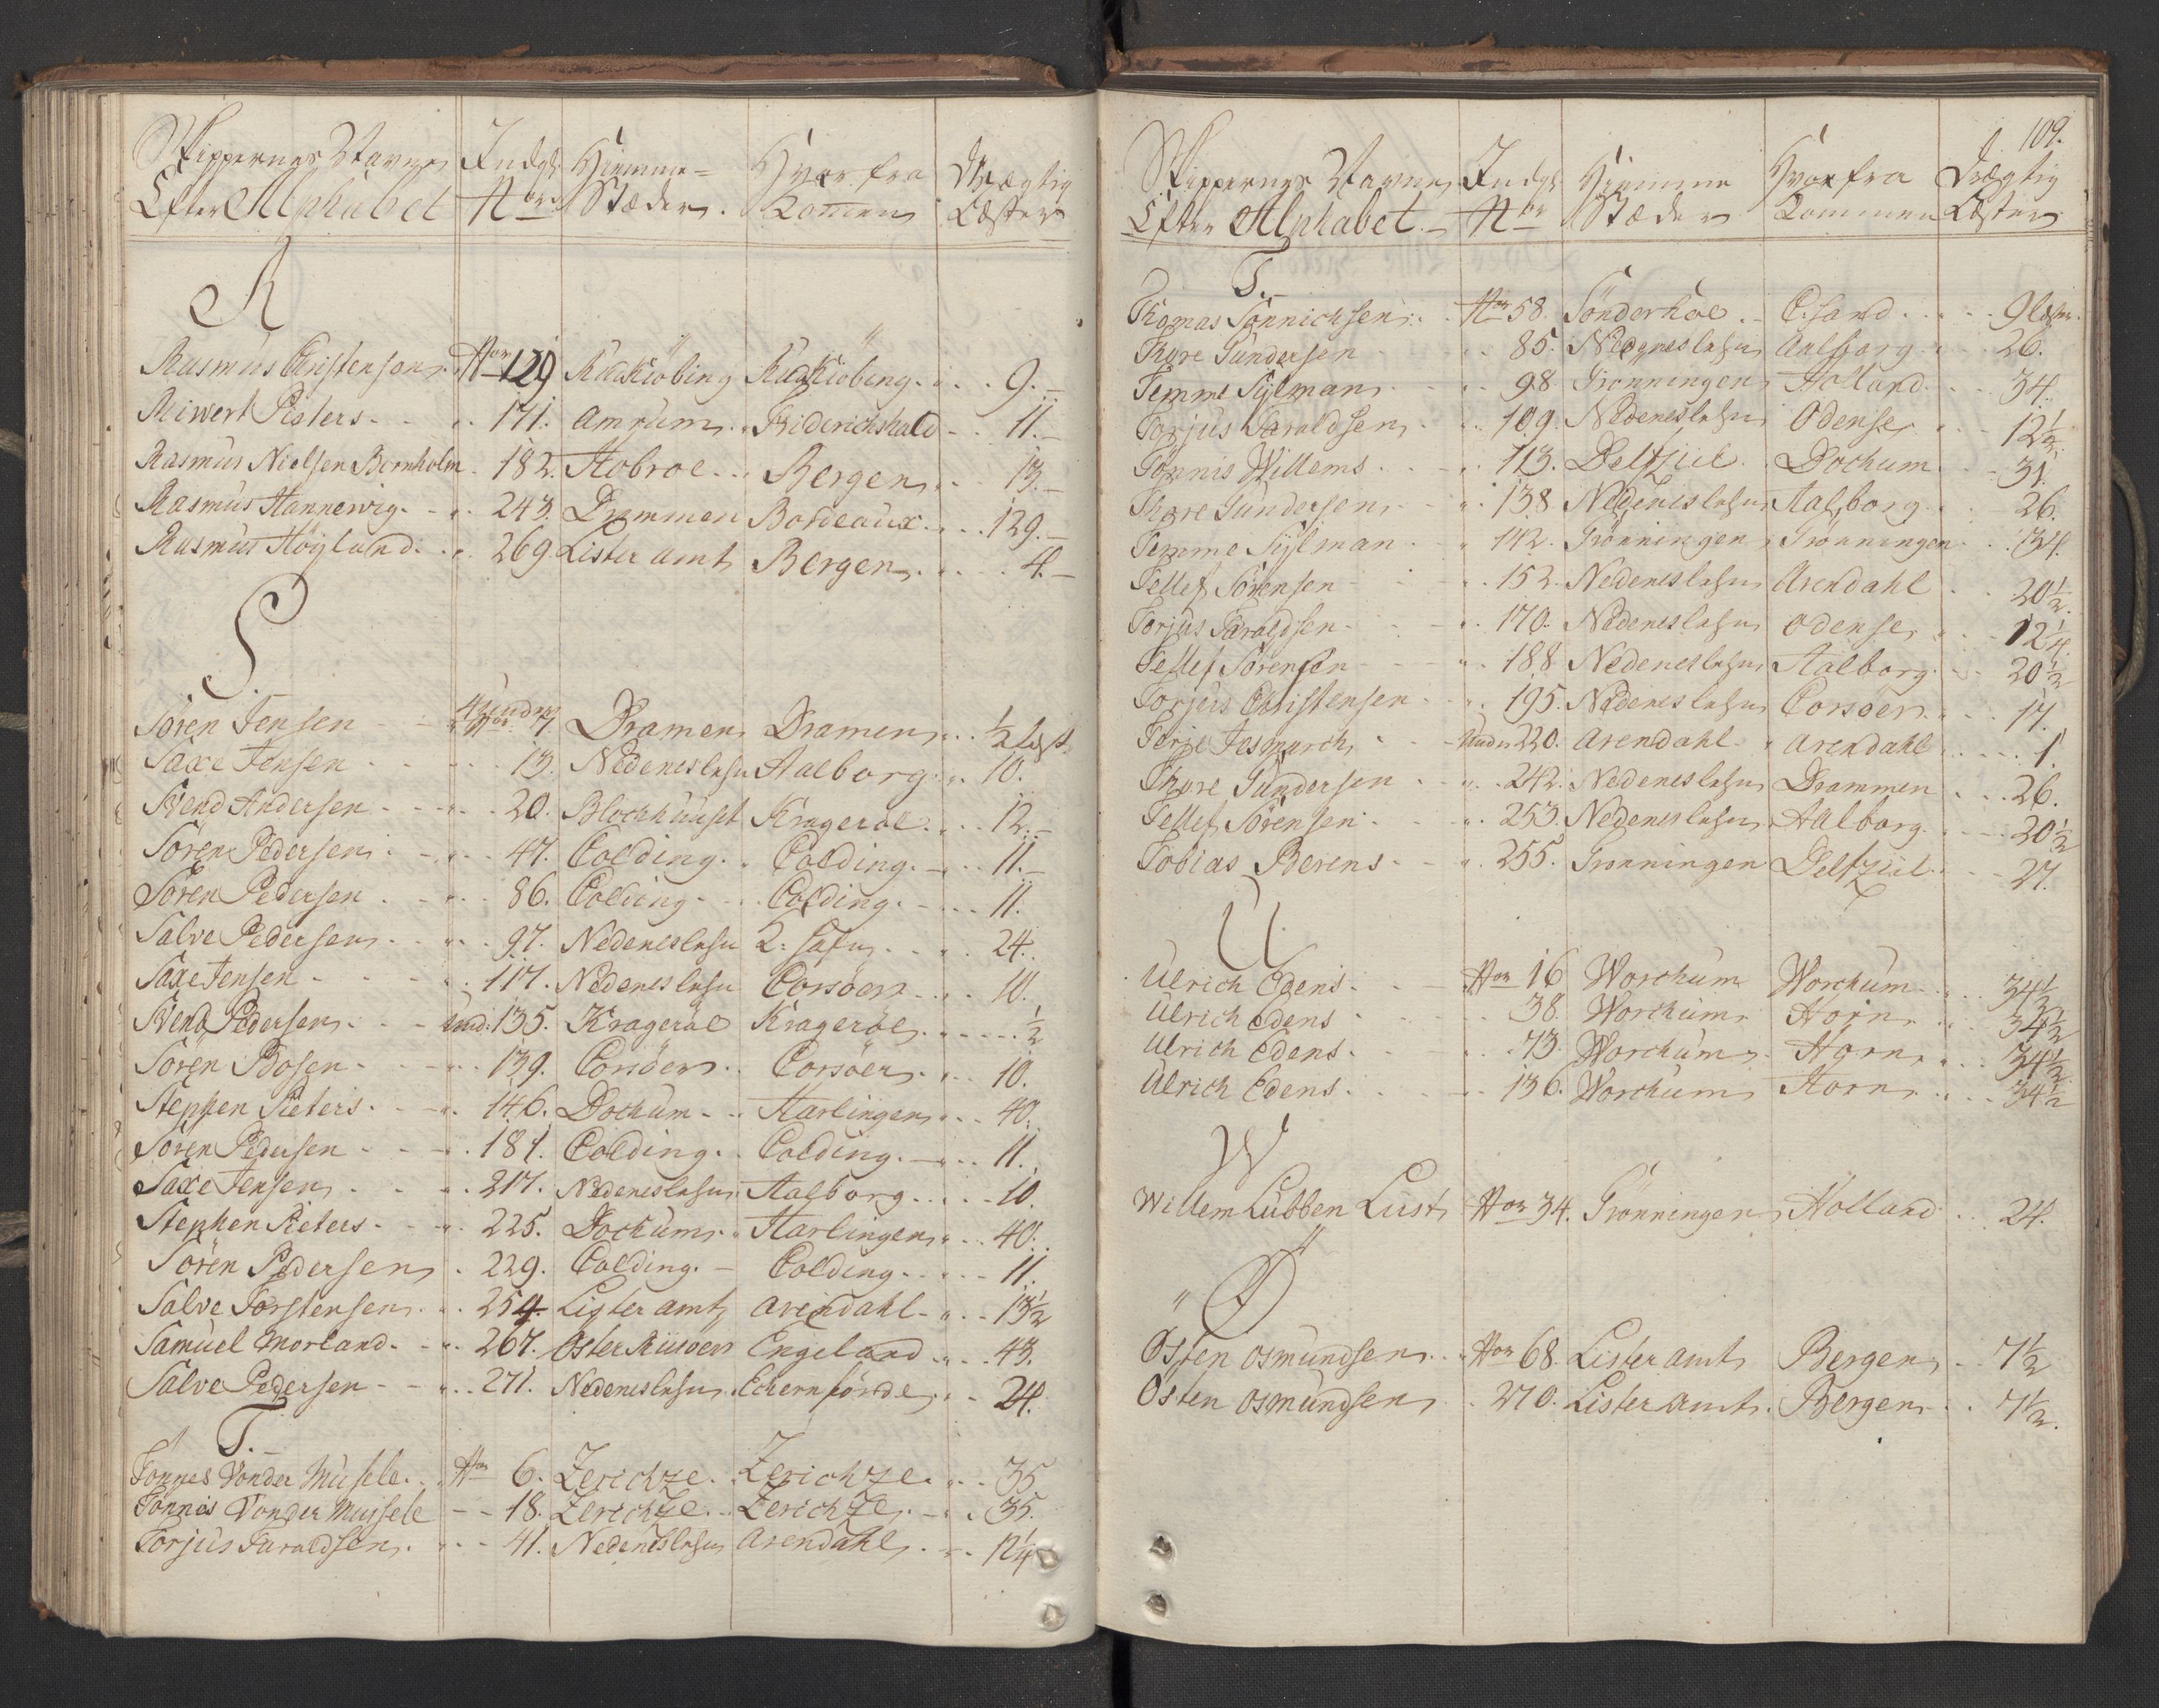 Skippernes Navne Indgl: Hiemme= Hvor fra Drægtig
Efter Alphabet Nor Stæder. Kommen Læster
R
Rasmus Christensen. Nor 129 Rudkiöbing Rudkiöbing. 9.
Riewert Pieters. 171. Amrum. Friderichshald 11.
Rasmus Nielsen Bornholm 182. Hobroe Bergen 13.
Rasmus Hannewig. 243. Drammen Bordeaux. 129.
Rasmus Höyland. 269 Lister amt Bergen. 4.
S
Sören Jensen 7. Dramen Dramen ½ læst.
Saxe Jensen 13. Nedenes lehn Aalborg. 10.
Svend Andersen 20. Blockhuuset Krageröe. 12.
Sören Pedersen 47. Colding. Colding. 11.
Sören Pedersen 86. Colding Colding. 11.
Salve Pedersen 97. Nedenes lehn 24.
Saxe Jensen 117. Nedenes lehn Corsöer 10.
Svend Pedersen Und: 135. Krageröe Krageröe ½
Sören Bosen 139. Corsöer Corsöer 10.
Stephen Pieters. 146. Dockum Harlingen 40.
Sören Pedersen 181. Colding. Colding. 11.
Saxe Jensen 217. Nedenes lehn Aalborg. 10.
Stephen Pieters. 225. Dockum Harlingen 40.
Sören Pedersen 229. Colding. Colding. 11.
Salve Torstensen. 254. Lister amt Arendahl 13½
Samuel Morland. 267. Öster Riisöer Engeland 43.
Salve Pedersen 271. Nedenes lehn Echernförde 24.
T.
Tonnes Vonder Mussele. Nor 6. Zerickze. Zerickze. 35
Tönnes Vonder Mussele 18. Zerickze. Zerickze. 35.
Torjus Taraldsen. 41. Nedenes lehn Arendahl 12¼
109.
Skippernes Navne Indgl: Hiemme Hvor fra Drægtig
Efter Alphabet. Nor Stæder Kommen Læster
T.
Thomas Sonnichsen. Nor 58. Sönderhoe 9 læster.
Thore Gundersen 85. Nedenes lehn Aalborg 26.
Temme Sylman 98. Grönningen Holland 34.
Torjus Taraldsen 109. Nedenes lehn Odense 12½
Tönnis Willems. 113. Delfziel Dockum 31.
Thore Gundersen 138. Nedenes lehn Aalborg 26.
Temme Sylman 142. Grönningen Grönningen 34.
Tellef Sörensen 152. Nedenes lehn Arendahl 20½
Torjus Taraldsen 170. Nedenes lehn Odense 12¼
Tellef Sörensen 188. Nedenes lehn Aalborg 20½
Torjus Christensen 195. Nedenes lehn Corsöer 17.
Terje Jesmarch Und: 220. Arendahl Arendahl 1.
Thore Gundersen 242. Nedenes lehn Drammen 26.
Tellef Sörensen 253. Nedenes lehn Aalborg 20½
Tobias Berens 255. Grønningen Delfziel 27.
U
Ulrich Edens. Nor 16 Worckum Worckum 34½
Ulrich Edens 38. Worckum Horn 34½
Ulrich Edens. 73. Worckum Horn 34½
Ulrich Edens. 136. Worckum Horn 34½
W
Willem Lübben Lust Nor 34. Grönningen Holland 24.
Ø
Østen Osmundsen. Nor 68. Lister amt Bergen 7½
Osten Osmundsen 270. Lister amt. Bergen 7½.